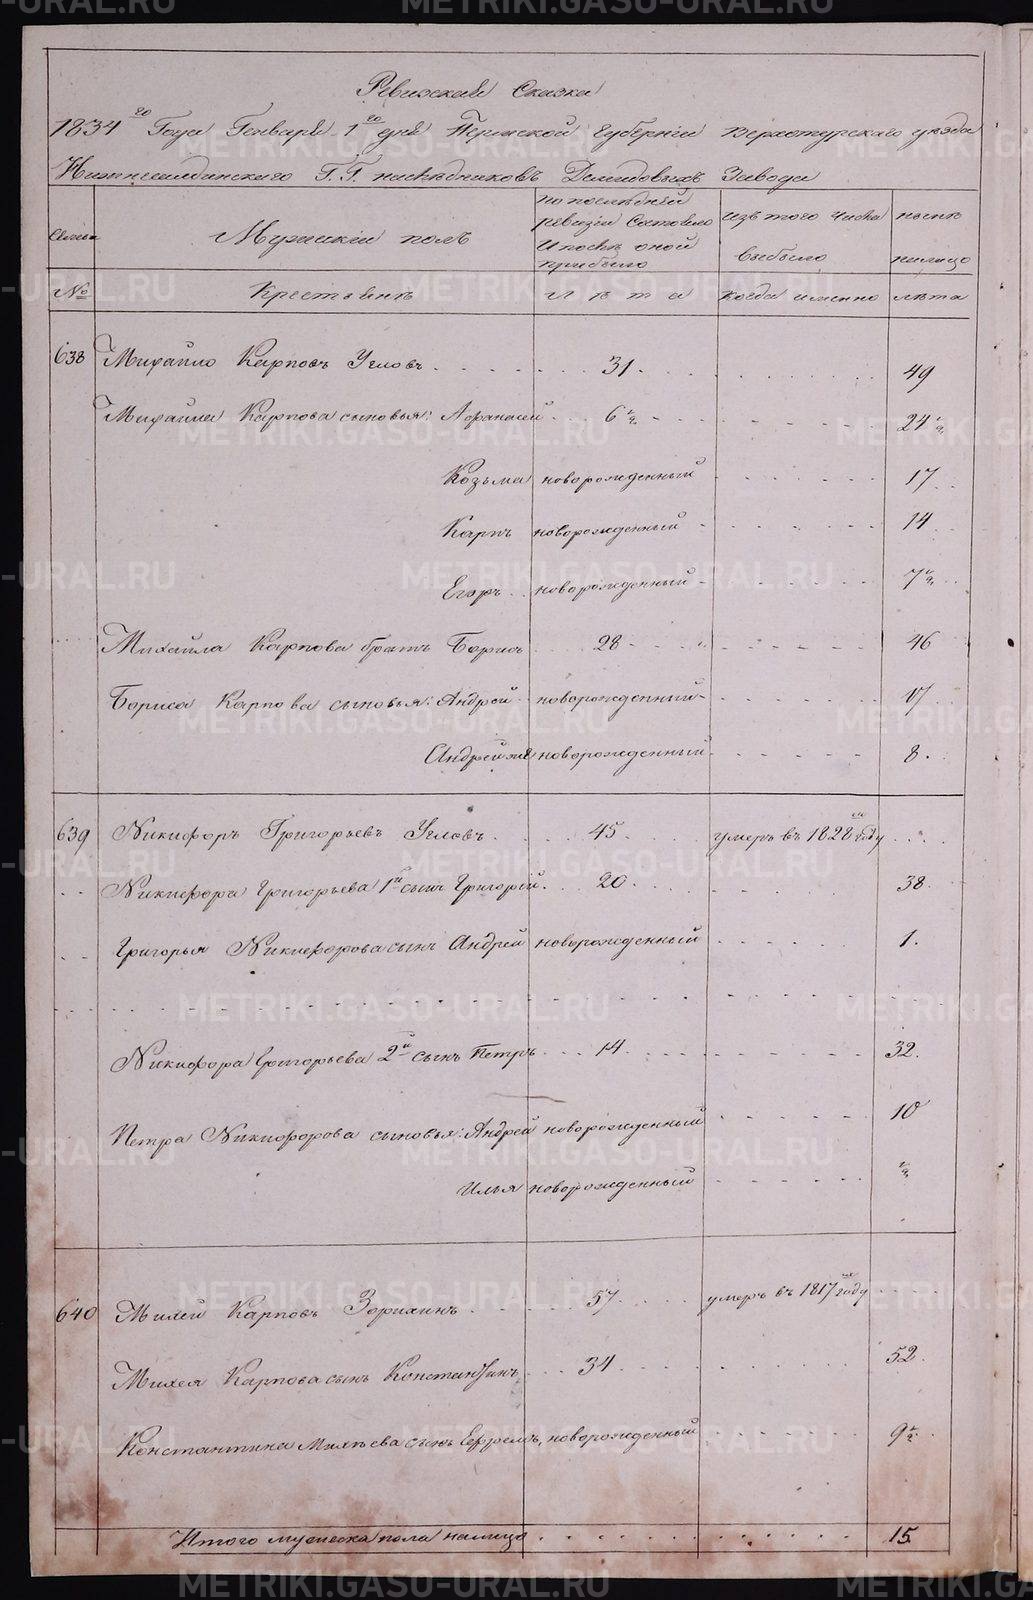 Ревизская Сказка
1834го Года Генваря 1го дня Пермской Губернiи Верхотурскаго уѣзда
Нижнесалдинскаго Г.Г. наслѣдниковъ Демидовыхъ Завода
Семьи
Мужескiй полъ
по послѣдней ревизiи Состояло и послѣ оной прибыло
изъ того числа выбыло
нынѣ налицо
№ Крестьянъ лѣта когда именно лѣта
638 Михайло Карповъ Угловъ 31. 49
Михайла Карпова сыновья: Афанасiй 6 1/2 24 1/2
Козьма новорожденный 17
Карпъ новорожденный 14
Егоръ новорожденный 7 1/2
Михайла Карпова братъ Борисъ 28 46
Бориса Карпова сыновья: Андрей новорожденный 17
Андрей же новорожденный 8.
639 Никифоръ Григорьевъ Угловъ 45 умеръ въ 1828мъ году
Никифора Григорьева 1й сынъ Григорiй 20 38.
Григорья Никифорова сынъ Андрей новорожденный 1.
Никифора Григорьева 2й сынъ Петръ 14 32.
Петра Никифорова сыновья: Андрей новорожденный 10
Илья новорожденный 1/2
640 Михей Карповъ Зорихинъ 57 умеръ въ 1817мъ году
Михея Карпова сынъ Константинъ 34 52.
Константина Михѣева сынъ Ефремъ, новорожденный 9 1/2
Итого мужеска пола налицо 15.
METRIKI.GASO-URAL.RU